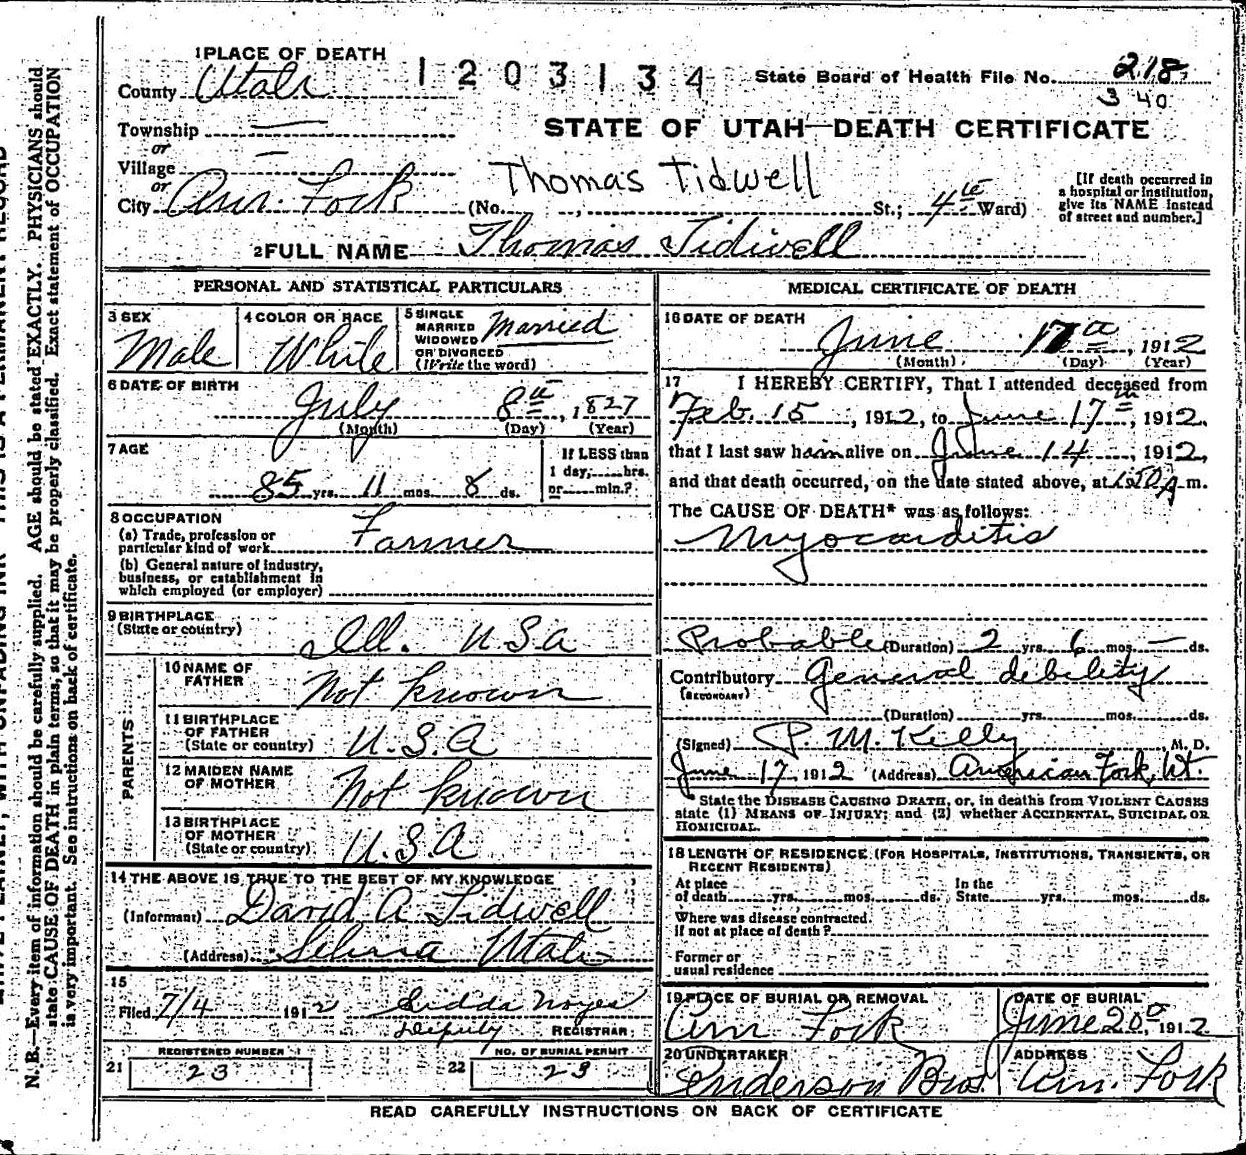 1 PLACE OF DEATH
1203134
State Board of Health File No. 218
3 40
County Utah
Township —
or
Village —
or
City Am. Fork
STATE OF UTAH—DEATH CERTIFICATE
Thomas Tidwell
(No. , St.; 4th Ward)
[If death occurred in
a hospital or institution,
give its NAME instead
of street and number.]
2 FULL NAME Thomas Tidwell
PERSONAL AND STATISTICAL PARTICULARS
3 SEX
Male
4 COLOR OR RACE
White
5 SINGLE
MARRIED
WIDOWED
OR DIVORCED
(Write the word)
Married
6 DATE OF BIRTH
July 8th, 1827
(Month) (Day) (Year)
7 AGE
85 yrs. 11 mos. 8 ds.
If LESS than
1 day, hrs.
or min.?
8 OCCUPATION
(a) Trade, profession or
particular kind of work Farmer
(b) General nature of industry,
business, or establishment in
which employed (or employer)
9 BIRTHPLACE
(State or country) Ill. U.S.A
PARENTS
10 NAME OF
FATHER Not known
11 BIRTHPLACE
OF FATHER
(State or country) U.S.A
12 MAIDEN NAME
OF MOTHER Not known
13 BIRTHPLACE
OF MOTHER
(State or country) U.S.A
14 THE ABOVE IS TRUE TO THE BEST OF MY KNOWLEDGE
(Informant) David A Tidwell
(Address) Utah
15
Filed 7/4 1912 Noyes
Deputy REGISTRAR
REGISTERED NUMBER
21 23
NO. OF BURIAL PERMIT
22 23
MEDICAL CERTIFICATE OF DEATH
16 DATE OF DEATH
June 17th, 1912
(Month) (Day) (Year)
17 I HEREBY CERTIFY, That I attended deceased from
Feb. 15, 1912, to June 17th, 1912,
that I last saw him alive on June 14, 1912,
and that death occurred, on the date stated above, at 1:50 A m.
The CAUSE OF DEATH* was as follows:
Myocarditis
Probable (Duration) 2 yrs. 6 mos. — ds.
Contributory General debility
(SECONDARY)
(Duration) yrs. mos. ds.
(Signed) P. M. Kelly M. D.
June 17 1912 (Address) American Fork, Ut.
State the DISEASE CAUSING DEATH, or, in deaths from VIOLENT CAUSES
state (1) MEANS OF INJURY; and (2) whether ACCIDENTAL, SUICIDAL OR
HOMICIDAL.
18 LENGTH OF RESIDENCE (FOR HOSPITALS, INSTITUTIONS, TRANSIENTS, OR
RECENT RESIDENTS)
At place
of death yrs. mos. ds.
In the
State yrs. mos. ds.
Where was disease contracted
if not at place of death?
Former or
usual residence
19 PLACE OF BURIAL OR REMOVAL
Am Fork
DATE OF BURIAL
June 20, 1912
20 UNDERTAKER
Anderson Bros
ADDRESS
Am. Fork
READ CAREFULLY INSTRUCTIONS ON BACK OF CERTIFICATE
N. B.—Every item of information should be carefully supplied. AGE should be stated EXACTLY. PHYSICIANS should
state CAUSE OF DEATH in plain terms, so that it may be properly classified. Exact statement of OCCUPATION
is very important. See instructions on back of certificate.